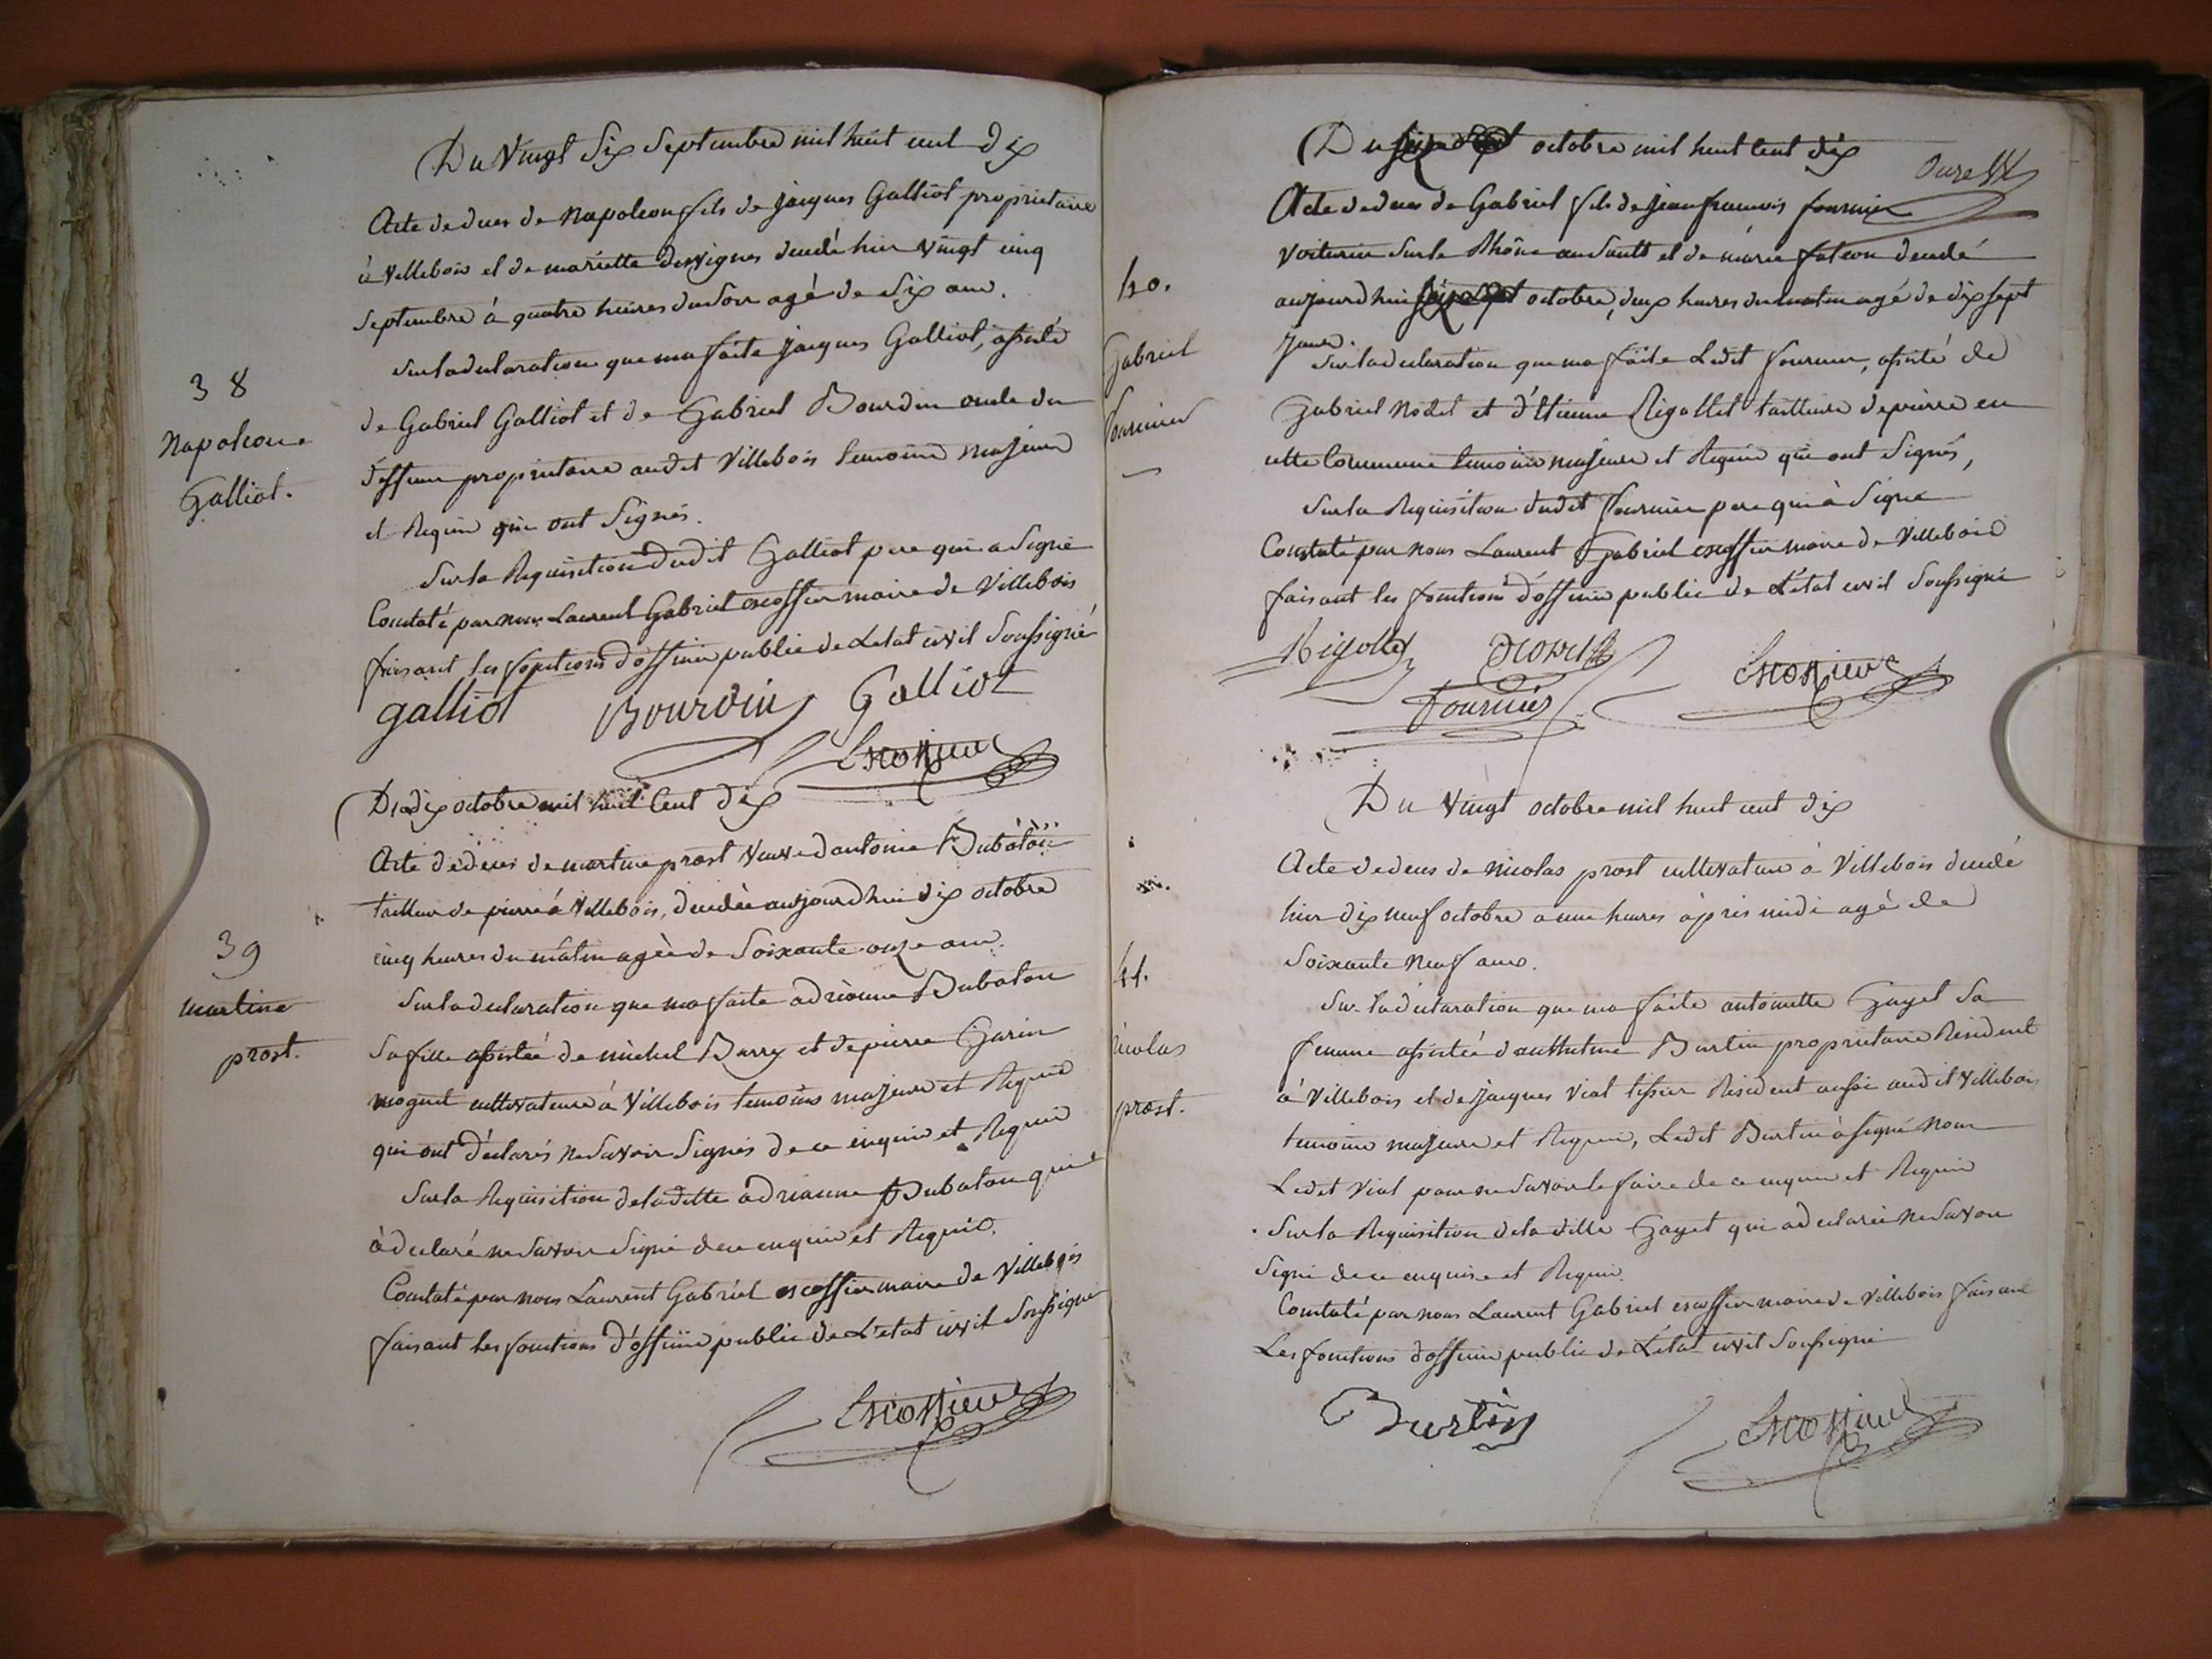 Du Vingt Six Septembre mil huit cent dix
Acte de deces de Napoleon fils de jacques Galliot proprietaire
à Villebois et de mariette desvignes decedé hier vingt cinq
septembre à quatre heures du Soir agé de Six ans.
Sur la declaration que ma faite jacques Galliot, assisté
de Gabriel Galliot et de Gabriel Bourdin oncle du
deffunt proprietaires audit Villebois temoins majeurs
et Requis qui ont Signés.
Sur la Requisition dudit Galliot pere qui a Signé
Constaté par nous Laurent Gabriel escoffier maire de Villebois
faisant les fonctions d'officier public de L'etat civil Soussigné
38
Napoleon
Galliot.
galliot Bourdin Galliot
Escoffier
Du dix octobre mil huit Cent dix
Acte de deces de martine prost veuve d'antoine Dubaton
tailleur de pierre à Villebois, decedée aujourdhui dix octobre
cinq heures du matin agée de Soixante onze ans.
Sur la declaration que ma faite adrianne Dubaton
Sa fille assistée de michel Barry et de pierre Garin
moguet cultivateurs à Villebois temoins majeurs et Requis
qui ont déclarés ne Savoir Signés de ce enquis et Requis
Sur la Requisition de la ditte adrianne Dubaton qui
à declaré ne Savoir Signé de ce enquis et Requis.
Constaté par nous Laurent Gabriel escoffier maire de Villebois
faisant les fonctions d'officier public de L'etat civil Soussigné
39
martine
prost.
Escoffier
Du octobre mil huit Cent dix
Acte de deces de Gabriel fils de jean francois fournier
voiturier Sur le Rhône au Sault et de marie falcon decedé
aujourdhui octobre, deux heures du matin agé de dix sept
jours.
Sur la declaration que ma faite Ledit fournier, assisté de
Gabriel Nodet et d'Etienne Rigollet tailleurs de pierre en
cette Commune temoins majeurs et Requis qui ont Signés,
Sur la Requisition dudit fournier pere qui à Signé
Constaté par nous Laurent Gabriel escoffier maire de Villebois
faisant les fonctions d'officier public de L'etat civil Soussigné
40.
Gabriel
fournier
Rigollet Nodet Escoffier
Fournier
Du Vingt octobre mil huit cent dix
Acte de deces de Nicolas prost cultivateur à Villebois decedé
hier dix neuf octobre a une heures après midi agé de
Soixante Neuf ans.
Sur la declaration que ma faite antoinette Gayet Sa
femme assistée d'anthelme Burtin proprietaire Resident
à Villebois et de jacques Vial tissier Resident aussi audit Villebois
temoins majeurs et Requis, Ledit Burtin à Signé Non
Ledit Vial pour ne Savoir le faire de ce enquis et Requis
Sur la Requisition de la ditte Gayet qui a declarée ne Savoir
Signé de ce enquise et Requis.
Constaté par nous Laurent Gabriel escoffier maire de Villebois faisant
Les fonctions d'officier public de L'etat civil Soussigné
41.
nicolas
prost.
Burtin Escoffier